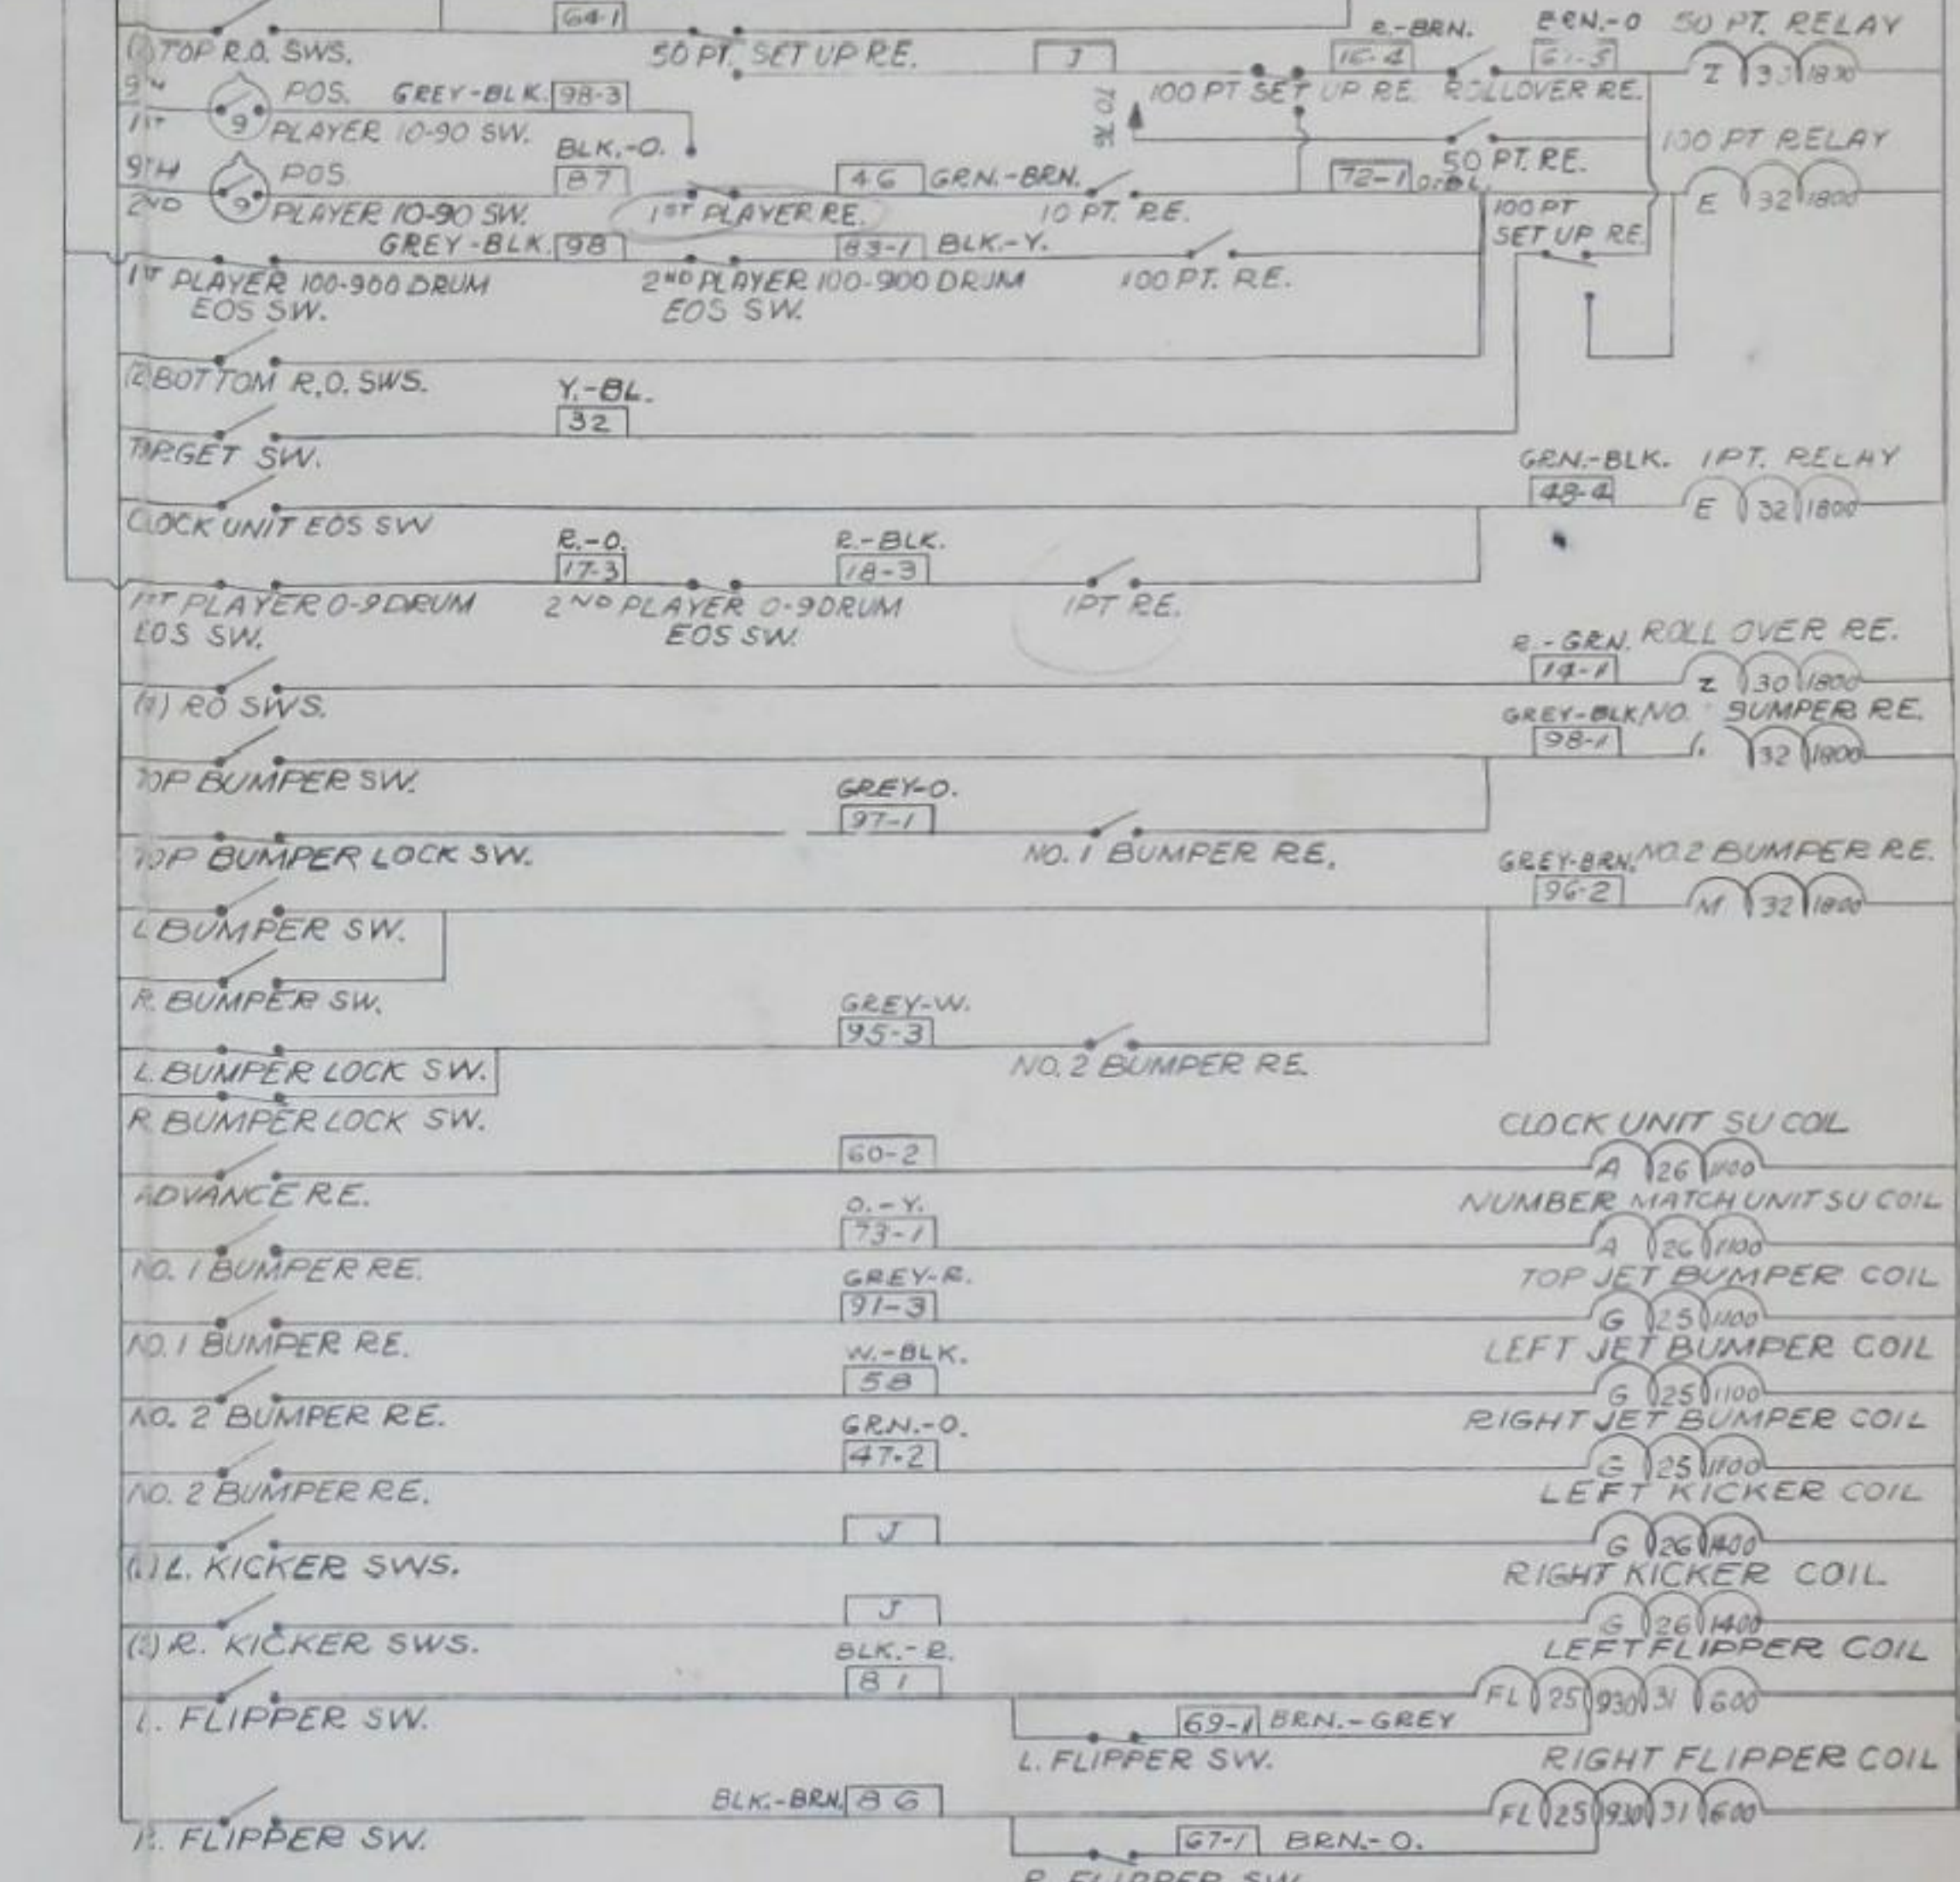 64-1
R.-BRN. BRN.-O 50 PT. RELAY
TOP R.O. SWS. 50 PT. SET UP RE. J 16-4 Z 1800
POS. GREY-BLK. 98-3 100 PT SET UP RE. ROLLOVER RE.
1ST 9 PLAYER 10-90 SW. TO 100 PT RELAY
BLK.-O. 50 PT. RE.
9TH POS. 87 46 GRN.-BRN. 72-1 E 32 1800
2ND 9 PLAYER 10-90 SW. 1ST PLAYER RE. 10 PT. RE. 100 PT
SET UP RE.
GREY-BLK. 98 83-1 BLK.-Y.
1ST PLAYER 100-900 DRUM 2ND PLAYER 100-900 DRUM 100 PT. RE.
EOS SW. EOS SW.
(2) BOTTOM R.O. SWS. Y.-BL.
32
TARGET SW. GRN.-BLK. 1PT. RELAY
48-4 E 32 1800
CLOCK UNIT EOS SW
R.-O. R.-BLK.
17-3 18-3
1ST PLAYER 0-9 DRUM 2ND PLAYER 0-9 DRUM 1PT RE.
EOS SW. EOS SW. R.-GRN. ROLL OVER RE.
14-1 Z 30 1800
RO SWS. GREY-BLK NO. BUMPER RE.
98-1 32 1800
TOP BUMPER SW. GREY-O.
97-1
TOP BUMPER LOCK SW. NO. 1 BUMPER RE. GREY-BRN. NO. 2 BUMPER RE.
96-2 M 32 1800
L BUMPER SW.
R. BUMPER SW. GREY-W.
95-3
L. BUMPER LOCK SW. NO. 2 BUMPER RE.
R BUMPER LOCK SW. CLOCK UNIT SU COIL
60-2 A 26 1100
ADVANCE RE. O.-Y. NUMBER MATCH UNIT SU COIL
73-1 A 26 1100
NO. 1 BUMPER RE. GREY-R. TOP JET BUMPER COIL
91-3 G 25 1100
NO. 1 BUMPER RE. W.-BLK. LEFT JET BUMPER COIL
58 G 25 1100
NO. 2 BUMPER RE. GRN.-O. RIGHT JET BUMPER COIL
47-2 G 25 1100
NO. 2 BUMPER RE. LEFT KICKER COIL
J G 26 1400
L. KICKER SWS. RIGHT KICKER COIL
J G 26 1400
R. KICKER SWS. BLK.-R. LEFT FLIPPER COIL
81 FL 25 930 31 600
L. FLIPPER SW. 69-1 BRN.-GREY
L. FLIPPER SW. RIGHT FLIPPER COIL
BLK.-BRN. 86 FL 25 930 31 600
R. FLIPPER SW. 67-1 BRN.-O.
R. FLIPPER SW.